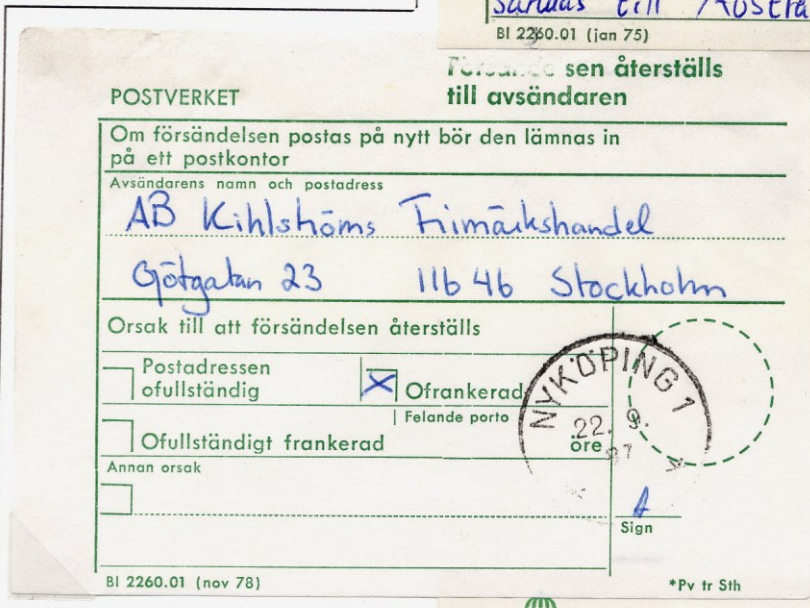 till Austra
Bl 2260.01 (jan 75)
POSTVERKET
sen återställs
till avsändaren
Om försändelsen postas på nytt bör den lämnas in
på ett postkontor
Avsändarens namn och postadress
AB Kihlströms Frimärkshandel
Götgatan 23 116 46 Stockholm
Orsak till att försändelsen återställs
Postadressen
ofullständig
Ofrankerad
Felande porto
Ofullständigt frankerad
öre
Annan orsak
NYKÖPING 1
22. 9.
Sign
Bl 2260.01 (nov 78)
*Pv tr Sth